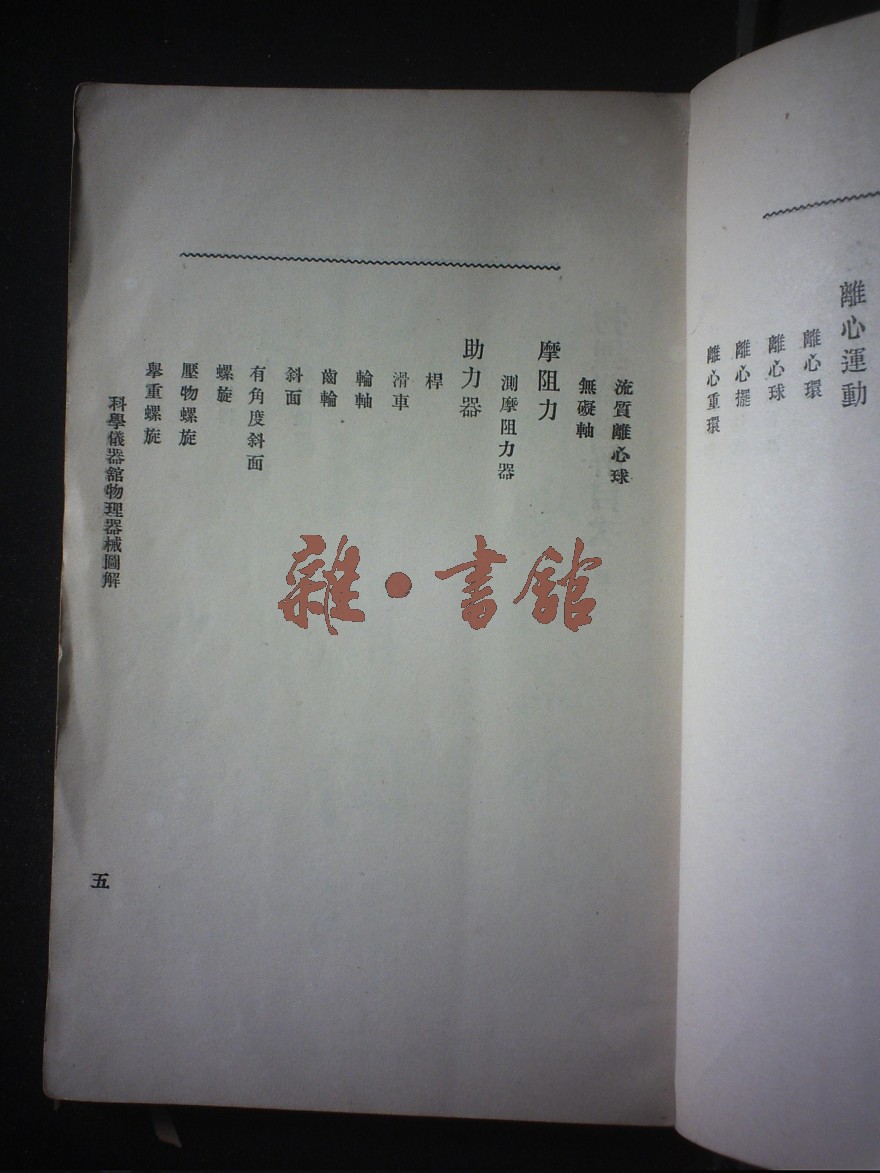 離心運動
離心環
離心球
離心擺
離心重環
流質離心球
無礙軸
摩阻力
測摩阻力器
助力器
桿
滑車
輪軸
齒輪
斜面
有角度斜面
螺旋
壓物螺旋
舉重螺旋
科學儀器館物理器械圖解
五
雜·書館